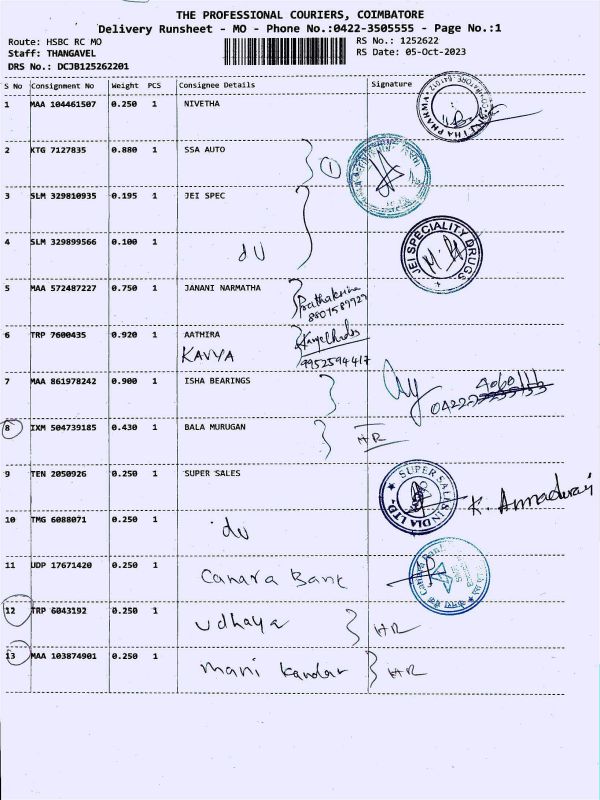 THE PROFESSIONAL COURIERS, COIMBATORE
Delivery Runsheet - MO - Phone No.:0422-3505555 - Page No.:1
Route: HSBC RC MO
RS No.: 1252622
Staff: THANGAVEL
RS Date: 05-Oct-2023
DRS No.: DCJB125262201
S No Consignment No Weight PCS Consignee Details Signature
1 MAA 104461507 0.250 1 NIVETHA
2 KTG 7127835 0.880 1 SSA AUTO 1
3 SLM 329810935 0.195 1 JEI SPEC
4 SLM 329899566 0.100 1 du
JEI SPECIALITY DRUGS
5 MAA 572487227 0.750 1 JANANI NARMATHA
8807589929
6 TRP 7600435 0.920 1 AATHIRA
KAVYA
9952594417
7 MAA 861978242 0.900 1 ISHA BEARINGS
8 IXM 504739185 0.430 1 BALA MURUGAN
HR
9 TEN 2050926 0.250 1 SUPER SALES
SUPER SALES INDIA LTD
K. Annadurai
10 TMG 6088071 0.250 1 du
11 UDP 17671420 0.250 1 Canara Bank
12 TRP 6043192 0.250 1 udhaya HR
13 MAA 103874901 0.250 1 mani kandan HR